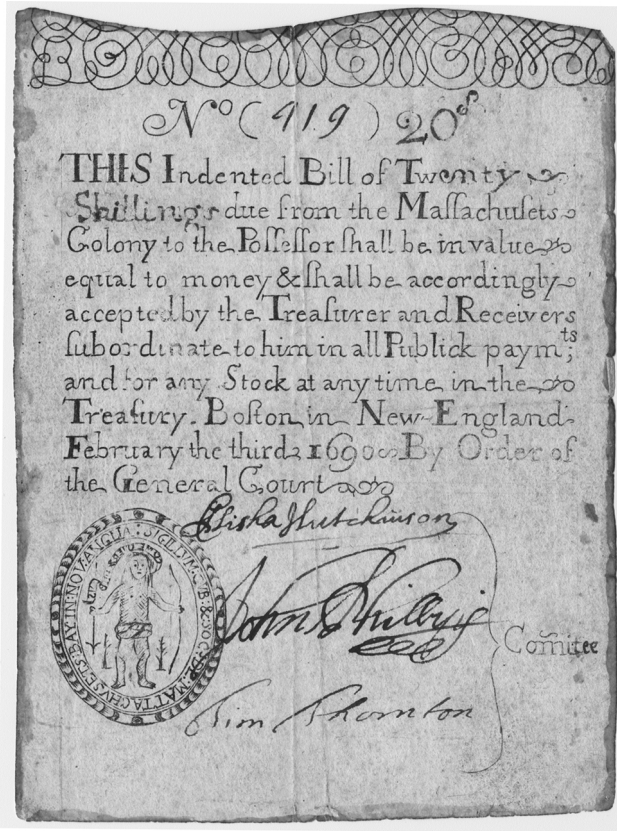 Nº (919) 20s
THIS Indented Bill of Twenty
Shillings due from the Maſſachuſets
Colony to the Poſſeſſor ſhall be in value
equal to money & ſhall be accordingly
accepted by the Treaſurer and Receivers
ſubordinate to him in all Publick paymts;
and for any Stock at any time in the
Treaſury. Boſton in New-England
February the third 1690. By Order of
the General Court
Eliſha Hutchinson
John Phillips
Tim Thornton
Comitee
SIGILLUM: GUB: & SOC: DE: MATTACHVSETS: BAY: IN: NOV: ANGLIA: